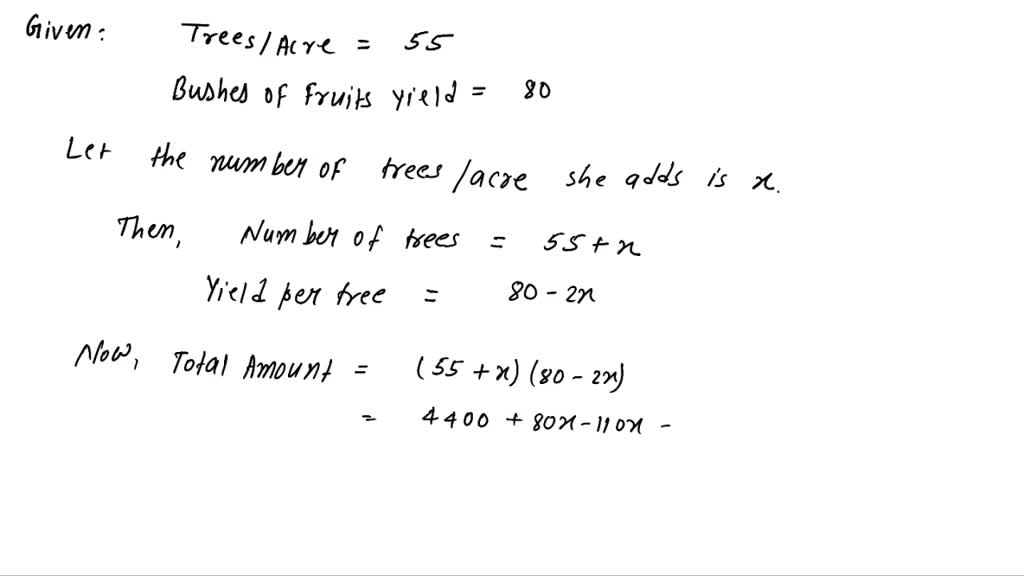 Given: Trees/Acre = 55
Bushes of Fruits yield = 80
Let the number of trees/acre she adds is x.
Then, Number of trees = 55 + x
Yield per tree = 80 - 2x
Now, Total Amount = (55 + x) (80 - 2x)
= 4400 + 80x - 110x -